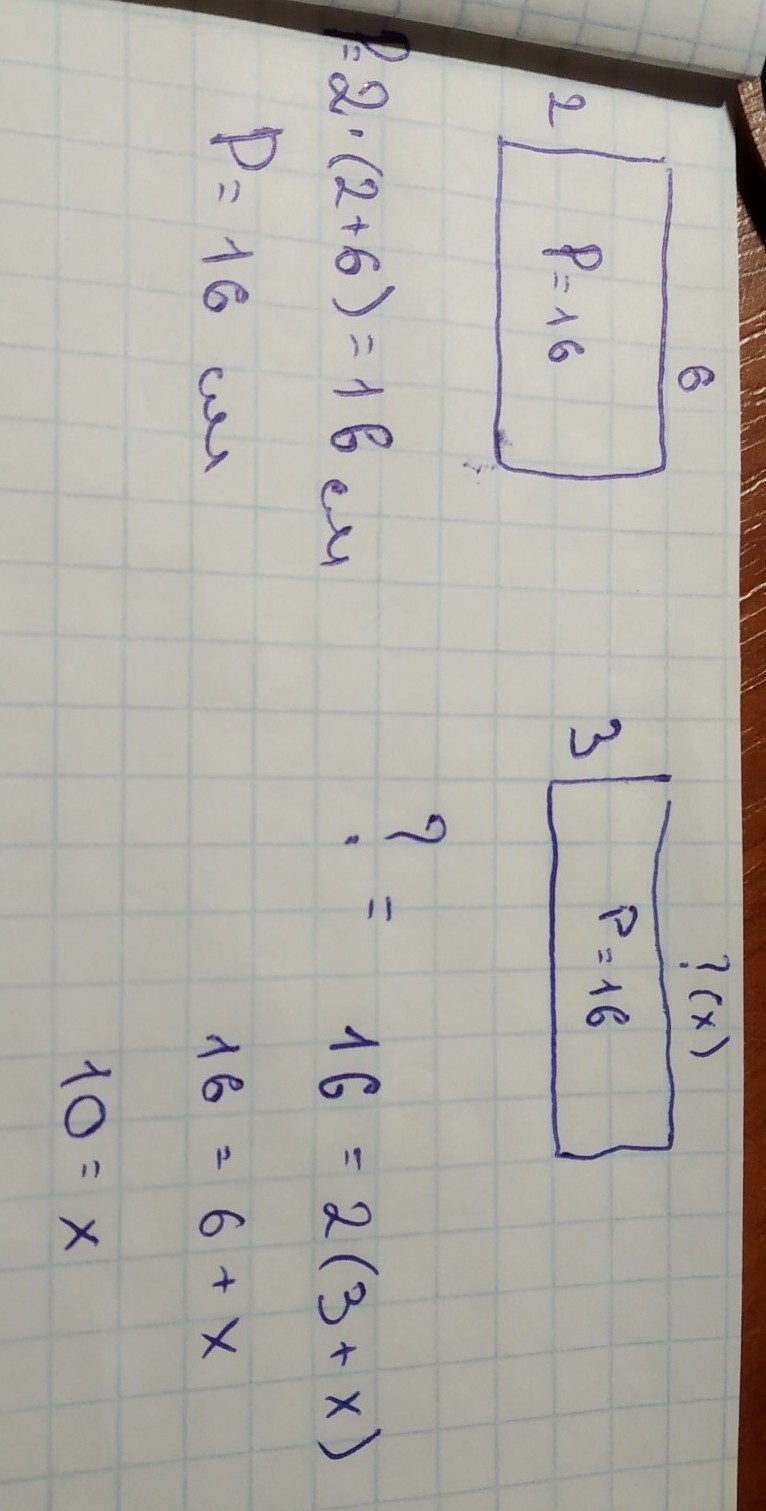 6
2
P=16
P=2·(2+6)=16 см
P=16 см
?(x)
3
P=16
? =
16=2(3+x)
16=6+x
10=x